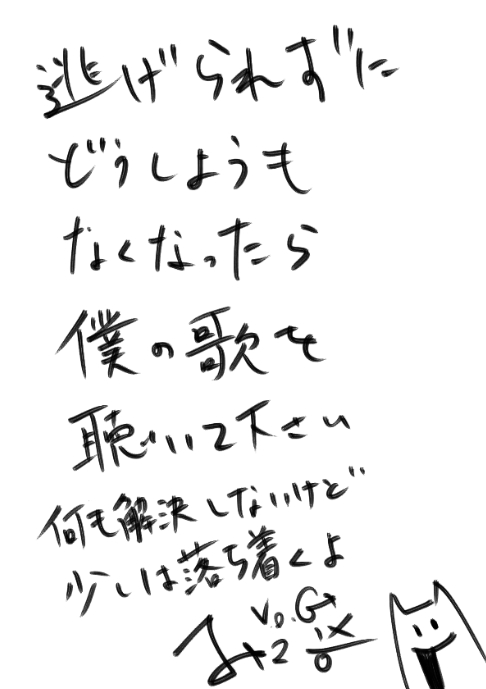 逃げられずに
どうしようも
なくなったら
僕の歌を
聴いて下さい
何も解決しないけど
少しは落ち着くよ
Vo.G